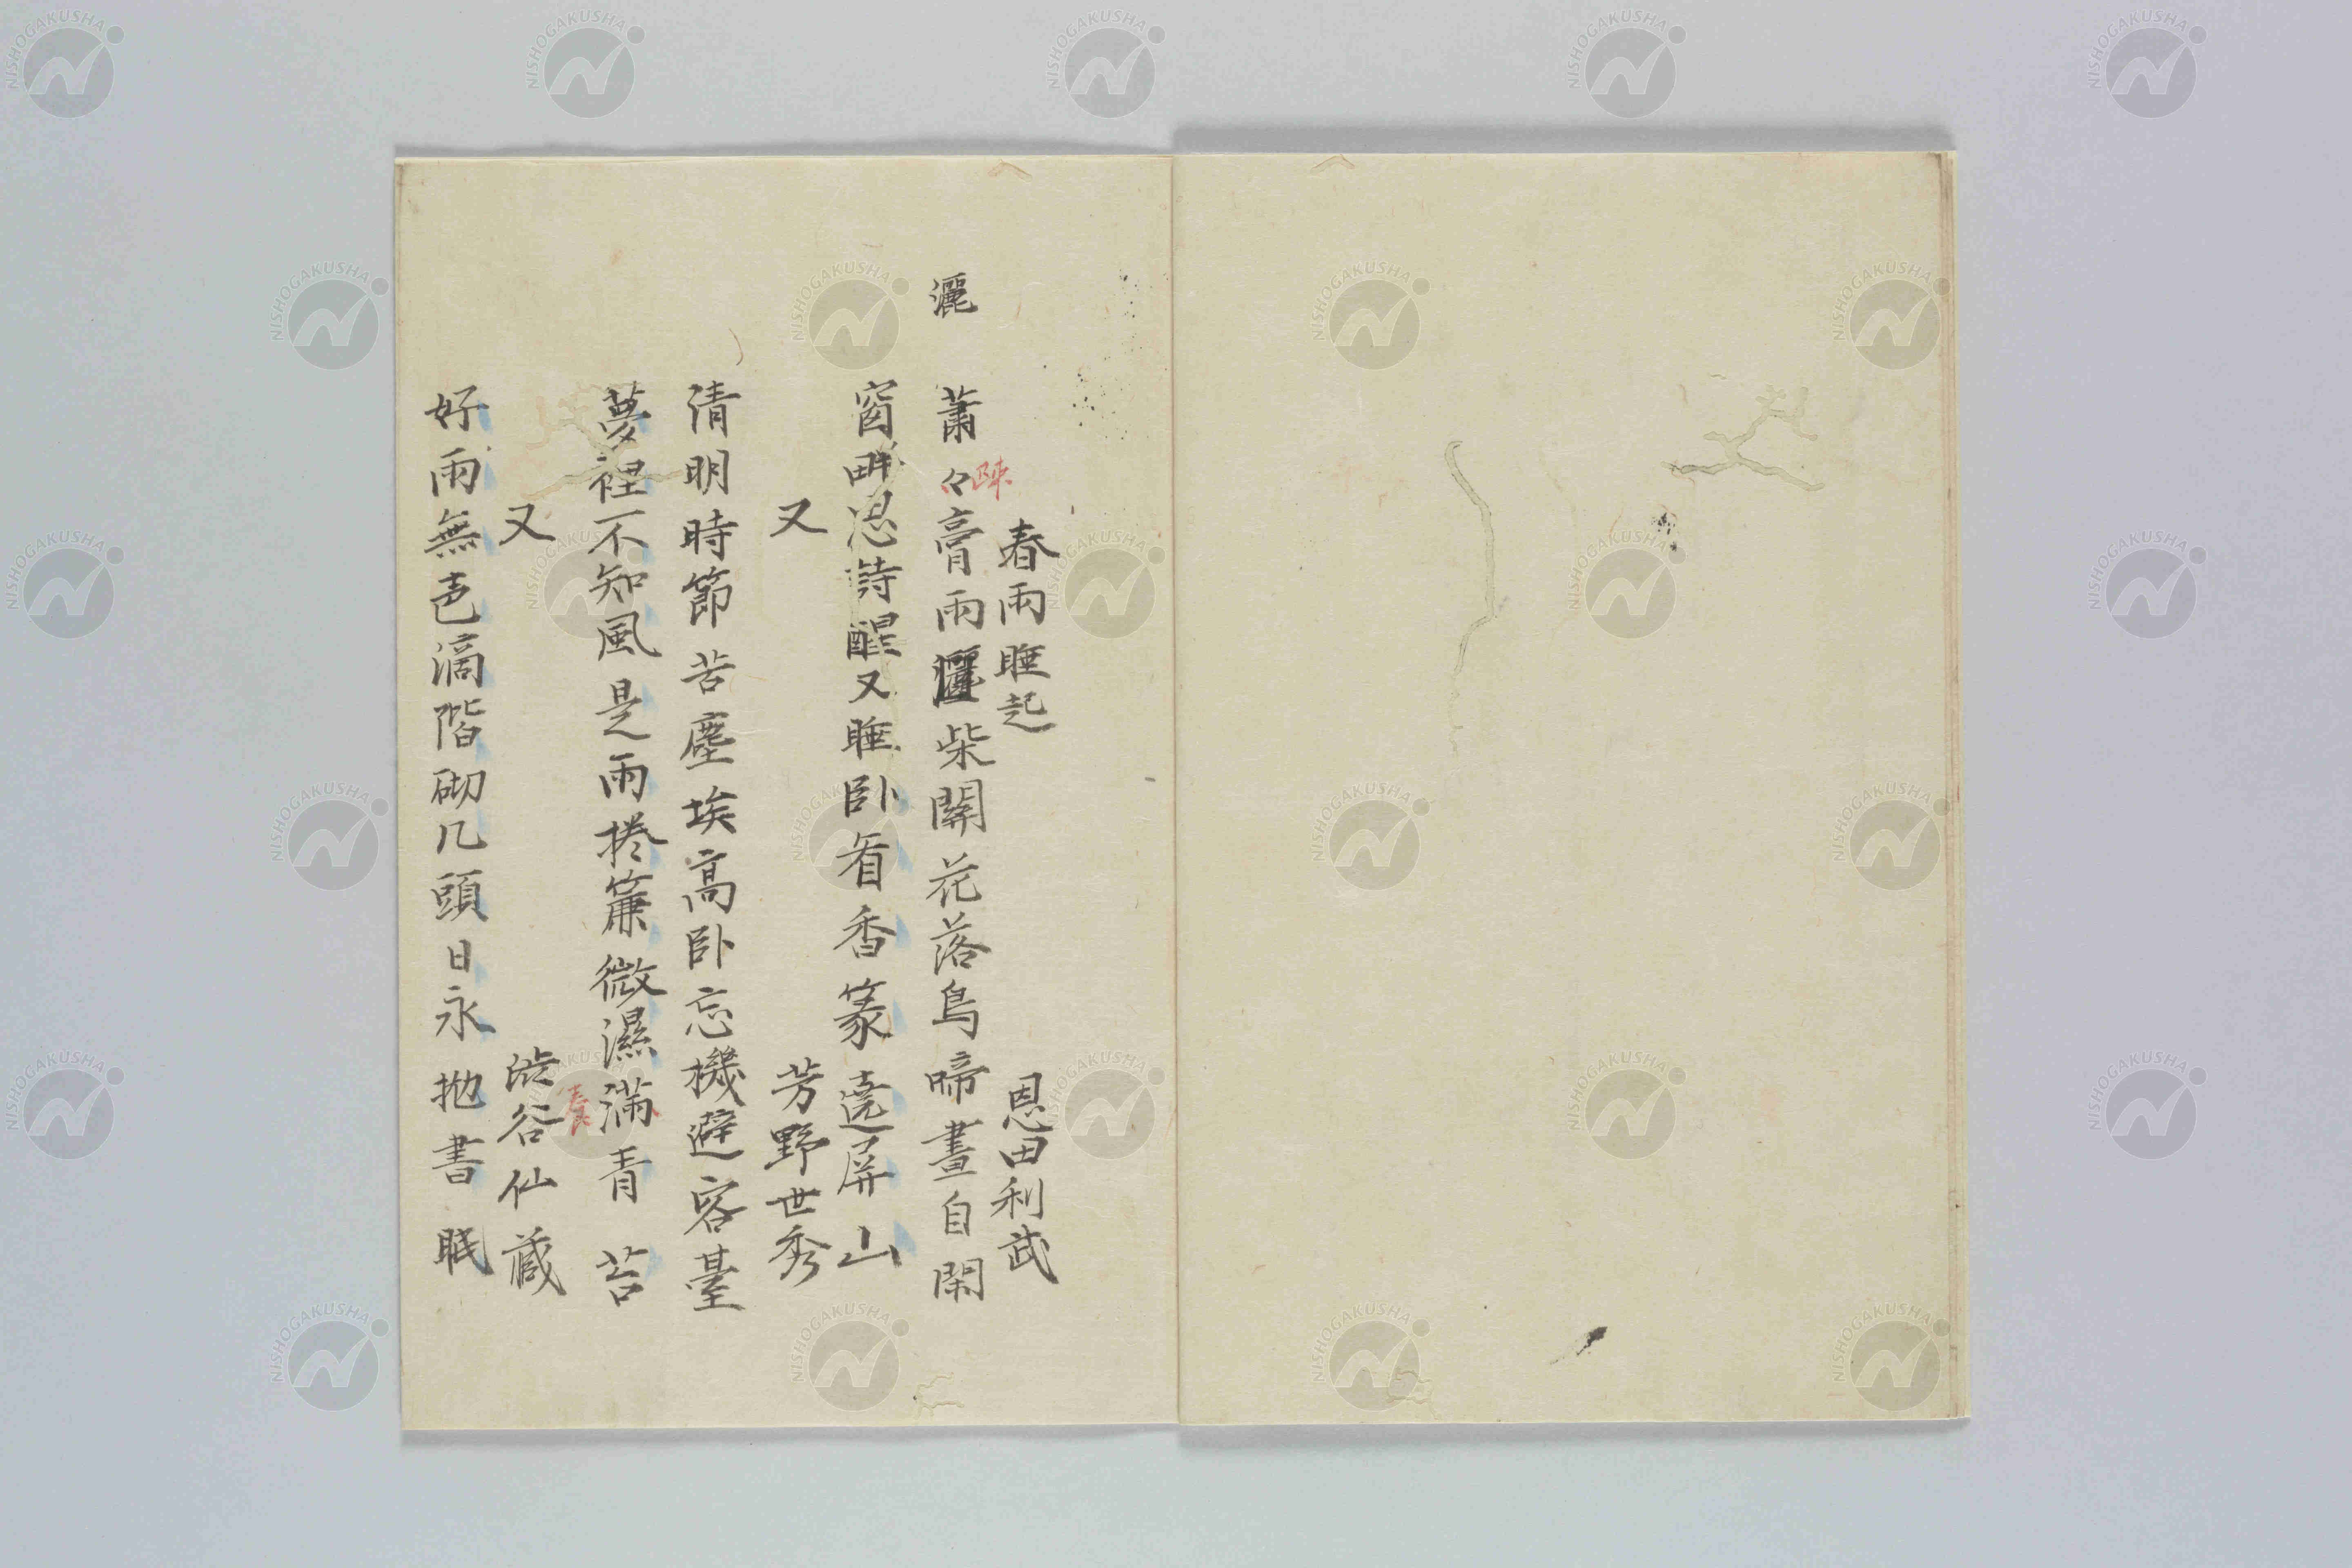 春雨睡起　恩田利武
灑
蕭々膏雨灑柴關花落鳥啼晝自閑
陳
窗畔思詩醒又睡臥看香篆遶屏山
又　芳野世秀
清明時節苦塵埃高臥忘機避客臺
夢裡不知風是雨捲簾微濕滿青苔
養
又　渋谷仙藏
好雨無声滴階砌几頭日永抛書眠
NISHOGAKUSHA